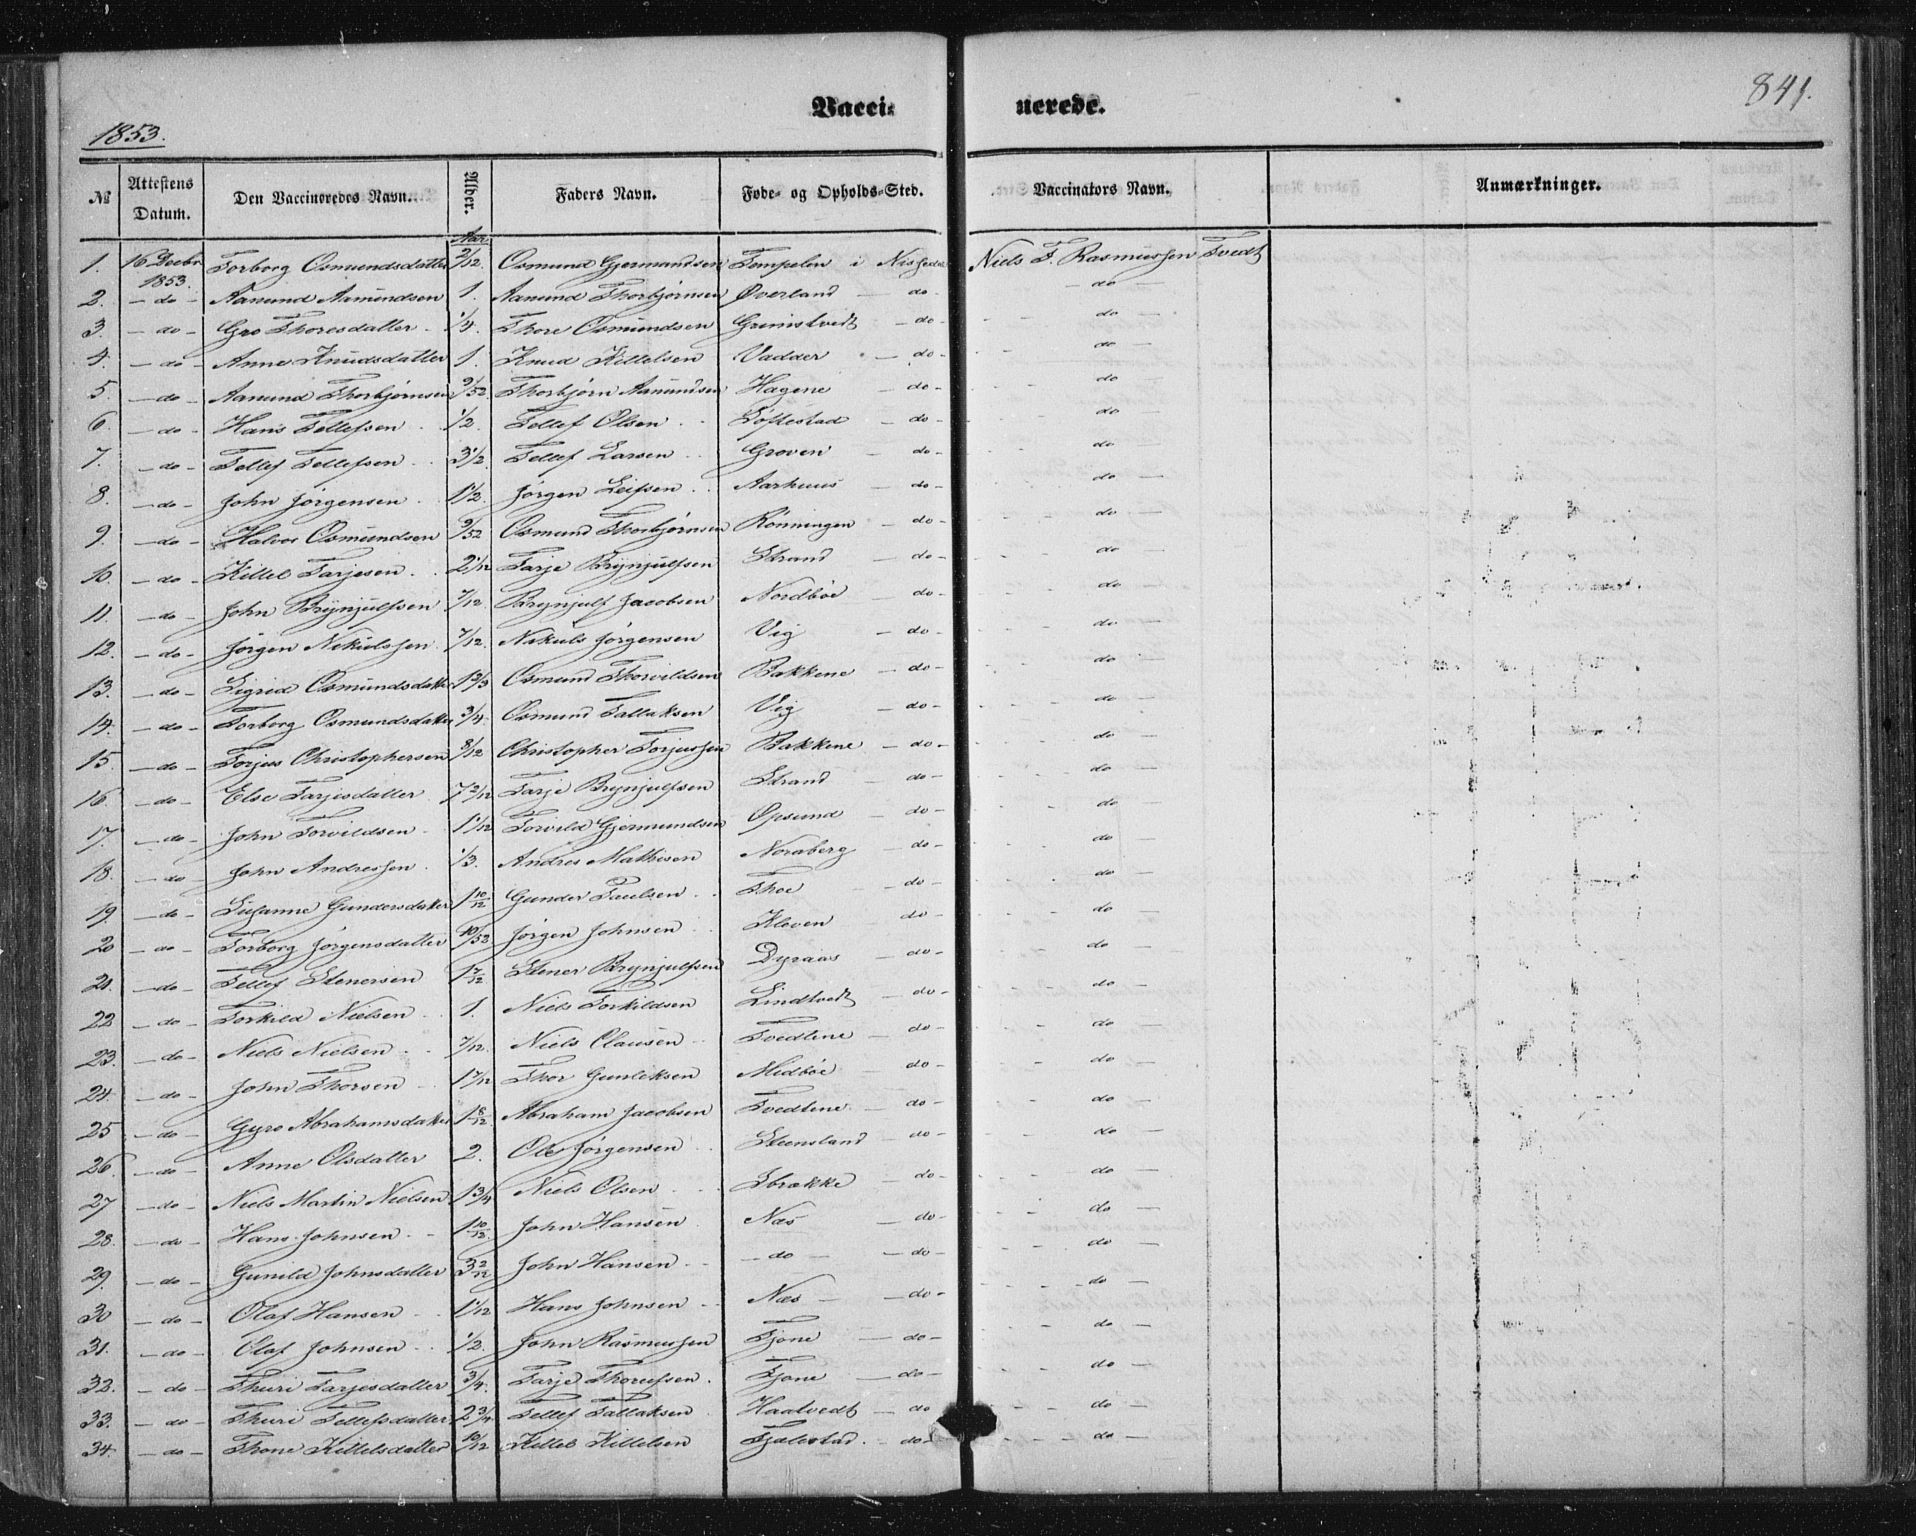 841.
Vacci- nerede.
1853.
№ Attestens Datum. Den Vaccineredes Navn. Alder. Faders Navn. Føde- og Opholds-Sted. Vaccinators Navn. Anmærkninger.
Aar
1. 16 Decbr 1853. Torborg Osmundsdatter 2/12. Osmund Gjermundsen Tempelen i Nissedal Niels T. Rasmussen Tvedt
2. - do - Aanund Aanundsen 1. Aanund Thorbjørnsen Øverland - do - - do -
3. - do - Gro Thoresdatter 1/4. Thore Osmundsen Grimstvedt - do - do -
4. - do - Anne Knudsdatter 1. Knud Kittelsen Vadder - do - do -
5. - do - Aanund Thorbjørnsen 9/52. Thorbjørn Aanundsen Hagene - do - do -
6. - do - Hans Tellefsen 1/2. Tellef Olsen Loftestad - do - do -
7. - do - Tellef Tellefsen 3 1/2. Tellef Larsen Groven - do - do -
8. - do - John Jørgensen 1 1/2. Jørgen Leifsen Aarhuus - do - do -
9. - do - Halvor Osmundsen 9/52 Osmund Thorbjørnsen Rönningen - do - do -
10. - do - Kittel Tarjesen 2 1/12 Tarje Brynjulfsen Strand - do - do -
11. - do - John Brynjulfsen 7/12. Brynjulf Jacobsen Nordbøe - do - do -
12. - do - Jørgen Nikulssen 7/12. Nikuls Jørgensen Vig - do - do -
13. - do - Sigrid Osmundsdatter 1 2/3 Osmund Thorvildsen Bakkene - do - do -
14. - do - Torborg Osmundsdatter 3/4. Osmund Tallaksen Vig - do - do -
15. - do - Torjus Christophersen 8/12 Christopher Torjussen Bakkene - do - do -
16 - do - Else Tarjesdatter 7 2/12 Tarje Brynjulfsen Strand - do - do -
17. - do - John Torvildsen 1 1/12 Torvild Gjermundsen Opsund - do - do -
18. - do - John Andressen 1/3. Andres Mathisen Noraberg - do - do -
19. - do - Susanne Gundersdatter 1 10/12 Gunder Paulsen Thoe - do - do -
20 - do - Torborg Jørgensdatter 10/52 Jørgen Johnsen Kleven do - do -
21. - do - Tellef Stenersen 1 7/12 Stener Brynjulfsen Dyraas - do - do -
22 - do - Torkild Nielsen 1. Niels Torkildsen Lindtvedt - do - do -
23. - do - Niels Nielsen 7/12. Niels Clausen Tvedtene - do - do -
24. - do - John Thorsen 1 7/12 Thor Gunleksen Midbøe - do - do -
25 - do - Gyro Abrahamsdatter 1 8/12 Abraham Jacobsen Tvedtene - do - do -
26. - do - Anne Olsdatter 2. Ole Jørgensen Steensland - do - do -
27 - do - Niels Martin Nielsen 1 3/4 Niels Olsen Sbrække - do - do -
28. - do - Hans Johnsen 1 10/12. John Hansen Næs - do - do -
29. - do - Gunild Johnsdatter 3 2/12 John Hansen - do - - do - do -
30 - do - Olaf Hansen 1 1/12 Hans Johnsen Næs - do - do -
31. - do - Olaf Johnsen 1/2. John Rasmussen Tjöne - do - do -
32. - do - Thuri Tarjesdatter 3/4. Tarje Thorufsen Tjone - do - do -
33. - do - Thuri Tellefsdatter 2 3/4 Tellef Tallaksen Haatvedt - do do -
34. - do - Thone Kittelsdatter 10/12 Kittel Kittelsen Tjalestad - do - - do -